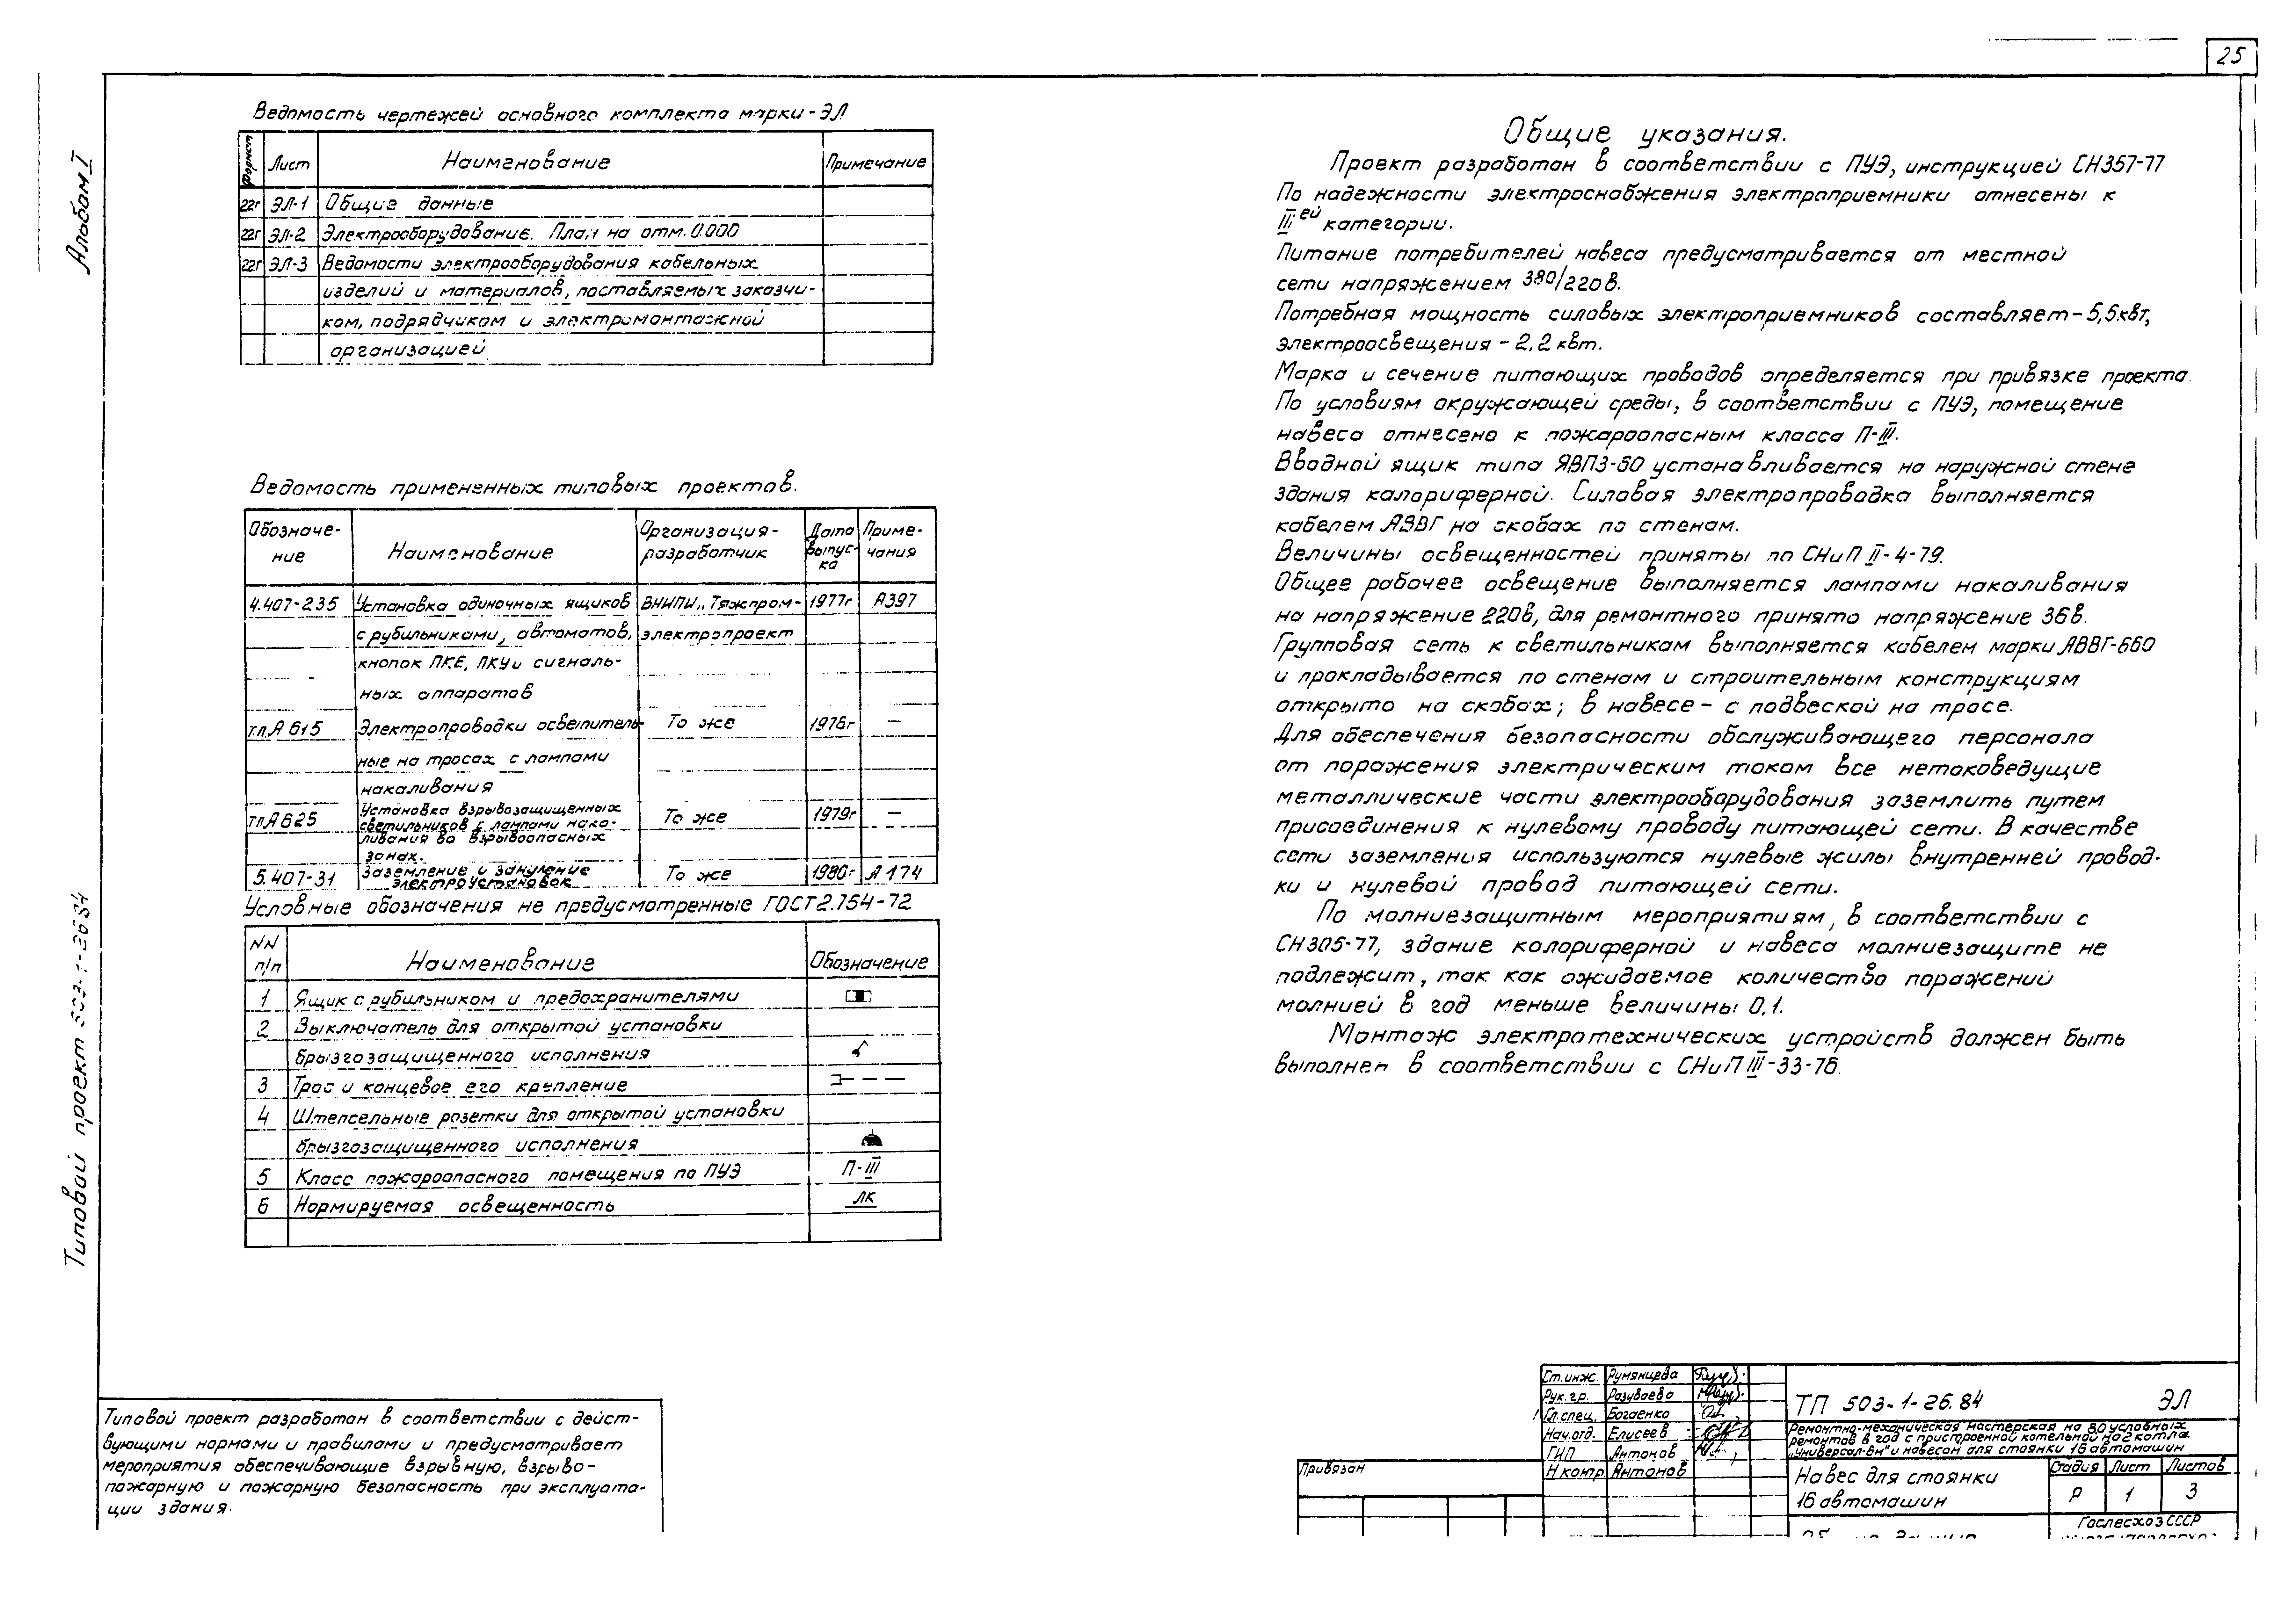 25
Альбом I
Типовой проект 503-1-26.84
Ведомость чертежей основного комплекта марки-ЭЛ
Формат Лист Наименование Примечание
22г ЭЛ-1 Общие данные
22г ЭЛ-2 Электрооборудование. План на отм. 0.000
22г ЭЛ-3 Ведомости электрооборудования кабельных
изделий и материалов, поставляемых заказчи-
ком, подрядчиком и электромонтажной
организацией
Ведомость примененных типовых проектов.
Обозначе-
ние
Наименование
Организация-
разработчик
Дата
выпус-
ка
Приме-
чания
4.407-235 Установка одиночных ящиков ВНИПИ „Тяжпром- 1977г А397
с рубильниками, автоматов, электропроект
кнопок ПКЕ, ПКУ и сигналь-
ных аппаратов
т.п.А 615 Электропроводки осветитель- То же 1976г —
ные на тросах с лампами
накаливания
тпА625 Установка взрывозащищенных То же 1979г —
светильников с лампами нака-
ливания во взрывоопасных
зонах.
5.407-31 Заземление и зануление То же 1980г А174
электроустановок
Условные обозначения не предусмотренные ГОСТ 2.754-72
NN
п/п
Наименование Обозначение
1 Ящик с рубильником и предохранителями
2 Выключатель для открытой установки
брызгозащищенного исполнения
3 Трос и концевое его крепление
4 Штепсельные розетки для открытой установки
брызгозащищенного исполнения
5 Класс пожароопасного помещения по ПУЭ П-III
6 Нормируемая освещенность лк
Типовой проект разработан в соответствии с дейст-
вующими нормами и правилами и предусматривает
мероприятия обеспечивающие взрывную, взрыво-
пожарную и пожарную безопасность при эксплуата-
ции здания.
Общие указания.
Проект разработан в соответствии с ПУЭ, инструкцией СН357-77
По надежности электроснабжения электроприемники отнесены к
III ей категории.
Питание потребителей навеса предусматривается от местной
сети напряжением 380/220в.
Потребная мощность силовых электроприемников составляет-5,5квт,
электроосвещения - 2,2 квт.
Марка и сечение питающих проводов определяется при привязке проекта.
По условиям окружающей среды, в соответствии с ПУЭ, помещение
навеса отнесено к пожароопасным класса П-III.
Вводной ящик типа ЯВПЗ-60 устанавливается на наружной стене
здания калориферной. Силовая электропроводка выполняется
кабелем АВВГ на скобах по стенам.
Величины освещенностей приняты по СНиП II-4-79.
Общее рабочее освещение выполняется лампами накаливания
на напряжение 220в, для ремонтного принято напряжение 36в.
Групповая сеть к светильникам выполняется кабелем марки АВВГ-660
и прокладывается по стенам и строительным конструкциям
открыто на скобах; в навесе - с подвеской на тросе.
Для обеспечения безопасности обслуживающего персонала
от поражения электрическим током все нетоковедущие
металлические части электрооборудования заземлить путем
присоединения к нулевому проводу питающей сети. В качестве
сети заземления используются нулевые жилы внутренней провод-
ки и нулевой провод питающей сети.
По молниезащитным мероприятиям, в соответствии с
СН305-77, здание колориферной и навеса молниезащите не
подлежит, так как ожидаемое количество поражений
молнией в год меньше величины 0,1.
Монтаж электротехнических устройств должен быть
выполнен в соответствии с СНиП III-33-76.
Привязан
Ст.инж. Румянцева
Рук.гр. Разуваева
Гл.спец. Богаенко
Нач.отд. Елисеев
ГИП Антонов
Н контр Антонов
ТП 503-1-26.84 ЭЛ
Ремонтно-механическая мастерская на 80 условных
ремонтов в год с пристроенной котельной на 2 котла
„Универсал-6м" и навесом для стоянки 16 автомашин
Навес для стоянки
16 автомашин
Стадия Лист Листов
Р 1 3
Гослесхоз СССР